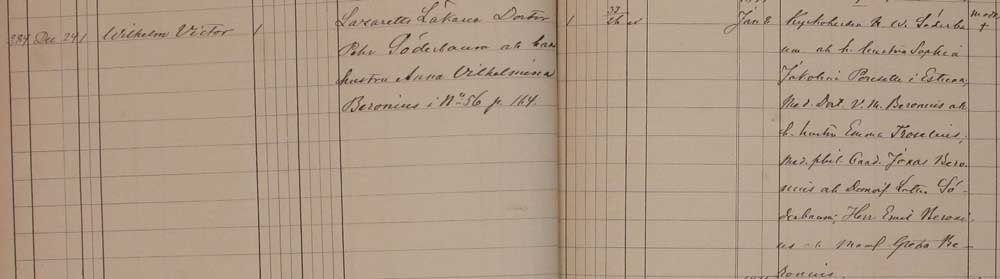 384 Dec 24 1 Wilhelm Victor 1
Lazaretts Läkaren Doctor
Pehr Söderbaum och hans
hustru Anna Vilhelmina
Beronius i No 56 p. 164.
1
Jan 8
Kyrkoherden P. W. Söderba
um och h. hustru Sophia
Jakobina Porsette i Estuna,
Med. Doct. V. M. Beronius och
h. hustru Emma Troselius,
Med. phil. Cand. Jonas Bero-
nius och Demois. Lotten Sö-
derbaum; Herr Emil Beroni-
us och Mams. Greta Be-
ronius.